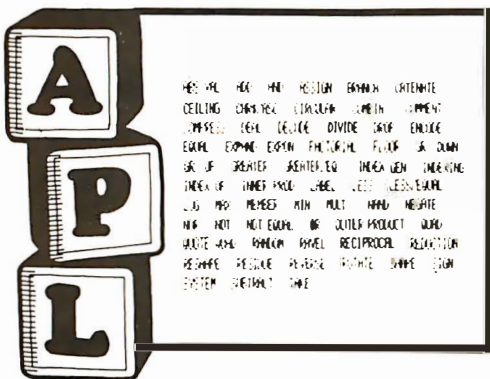 A
P
L
ABS VAL ADD AND ASSIGN BRANCH CATENATE
CEILING CIRCULAR COMBIN COMMENT
COMPRESS DEAL DECODE DIVIDE DROP ENCODE
EQUAL EXPAND EXPON FACTORIAL FLOOR GR DOWN
GR UP GREATER GREATER.EQ INDEX GEN INDEXING
INDEX OF INNER PROD LABEL LESS LESS/EQUAL
LOG MAX MEMBER MIN MULT NAND NEGATE
NOR NOT NOT EQUAL OR OUTER PRODUCT QUAD
QUOTE-QUAD RANDOM RAVEL RECIPROCAL REDUCTION
RESHAPE RESIDUE REVERSE ROTATE SHAPE SIGN
SYSTEM SUBTRACT TAKE